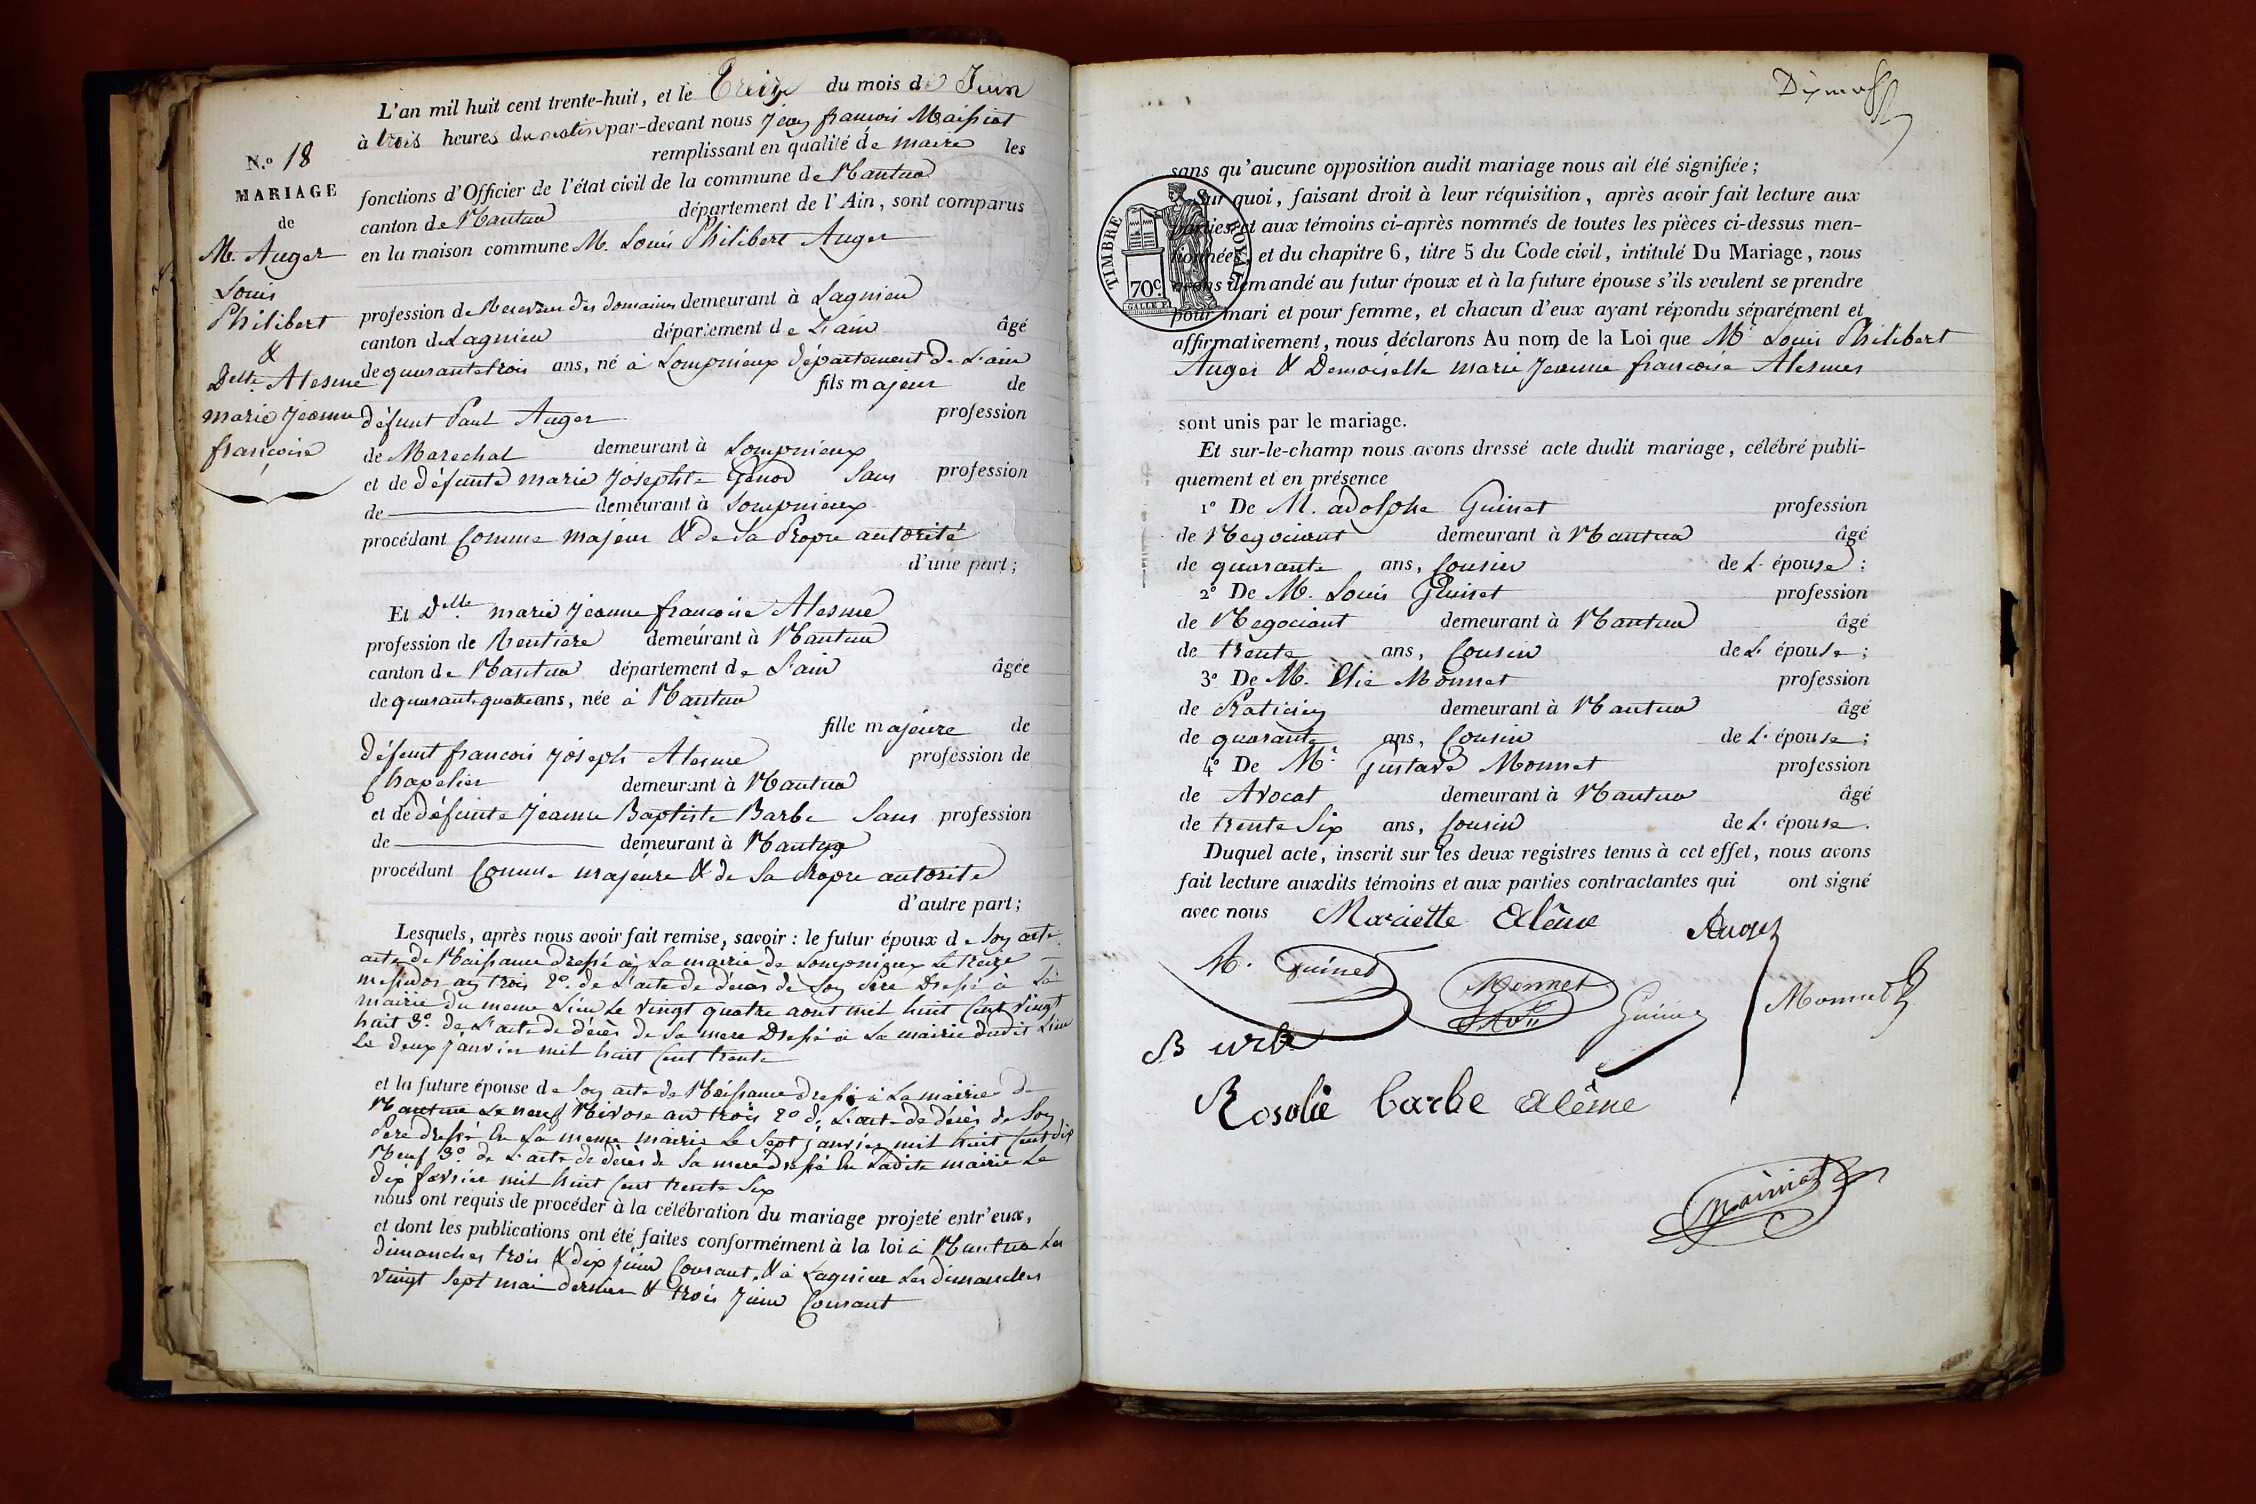 L'an mil huit cent trente-huit, et le Treize du mois de Juin
à trois heures du matin par-devant nous Jean françois Maissiat
remplissant en qualité de maire les
fonctions d'Officier de l'état civil de la commune de Nantua
canton de Nantua département de l'Ain, sont comparus
en la maison commune M. Louis Philibert Auger
profession de Receveur des domaines demeurant à Lagnieu
canton de Lagnieu département de L'ain âgé
de quarante trois ans, né à Lompnieux département de L'ain
fils majeur de
défunt Paul Auger profession
de Marechal demeurant à Lompnieux
et de défunte marie Josephte Genod Sans profession
de demeurant à Lompnieux
procédant Comme majeur & de sa Propre autorité
d'une part;
Et Dlle. marie jeanne françoise Alesme
profession de Rentière demeurant à Nantua
canton de Nantua département de L'ain âgée
de quarante quatre ans, née à Nantua
fille majeure de
défunt françois joseph Alesme profession de
Chapelier demeurant à Nantua
et de défunte Jeanne Baptiste Barbe Sans profession
de demeurant à Nantua
procédant Comme majeure & de Sa Propre autorité
d'autre part;
Lesquels, après nous avoir fait remise, savoir : le futur époux de Son acte
acte de Naissance dressé à La mairie de Lompnieux Le treize
messidor an trois 2º. de L'acte de décès de Son Père Dressé à La
mairie du meme Lieu Le Vingt quatre aout mil huit Cent Vingt
huit 3º. de L'acte de décès de Sa mere Dressé à La mairie dudit Lieu
Le deux janvier mil huit Cent trente
et la future épouse de Son acte de Naissance dressé à La mairie de
Nantua Le neuf Nivose an trois 2º de L'acte de décès de Son
Père dressé En La meme mairie Le Sept janvier mil huit Cent dix
Neuf 3º. de L'acte de décès de Sa mere dressé En Ladite mairie Le
dix fevrier mil huit Cent trente Six
nous ont requis de procéder à la célébration du mariage projeté entr'eux,
et dont les publications ont été faites conformément à la loi à Nantua Les
dimanches trois & dix juin Courant, & à Lagnieu Les dimanches
Vingt Sept mai dernier & trois Juin Courant
N.º 18
MARIAGE
de
M. Auger
Louis
Philibert
&
Delle. Alesme
marie jeanne
françoise
TIMBRE ROYAL
70c.
sans qu'aucune opposition audit mariage nous ait été signifiée;
Sur quoi, faisant droit à leur réquisition, après avoir fait lecture aux
parties et aux témoins ci-après nommés de toutes les pièces ci-dessus men-
tionnées, et du chapitre 6, titre 5 du Code civil, intitulé Du Mariage, nous
avons demandé au futur époux et à la future épouse s'ils veulent se prendre
pour mari et pour femme, et chacun d'eux ayant répondu séparément et
affirmativement, nous déclarons Au nom de la Loi que Mr Louis Philibert
Auger & Demoiselle marie jeanne françoise Alesmes
sont unis par le mariage.
Et sur-le-champ nous avons dressé acte dudit mariage, célébré publi-
quement et en présence
1º De M. adolphe Guinet profession
de Negociant demeurant à Nantua âgé
de quarante ans, Cousin de L'épouse :
2º De M. Louis Guinet profession
de Negociant demeurant à Nantua âgé
de trente ans, Cousin de L'épouse ;
3º De M. Elie Monnet profession
de Praticien demeurant à Nantua âgé
de quarante ans, Cousin de L'épouse ;
4º De Mr. Gustave Monnet profession
de Avocat demeurant à Nantua âgé
de trente Six ans, Cousin de L'épouse.
Duquel acte, inscrit sur les deux registres tenus à cet effet, nous avons
fait lecture auxdits témoins et aux parties contractantes qui ont signé
avec nous Mariette Alême Auger
Guinet Monnet Guinet Monnet
Barbe
Rosalie barbe Alême
Maissiat